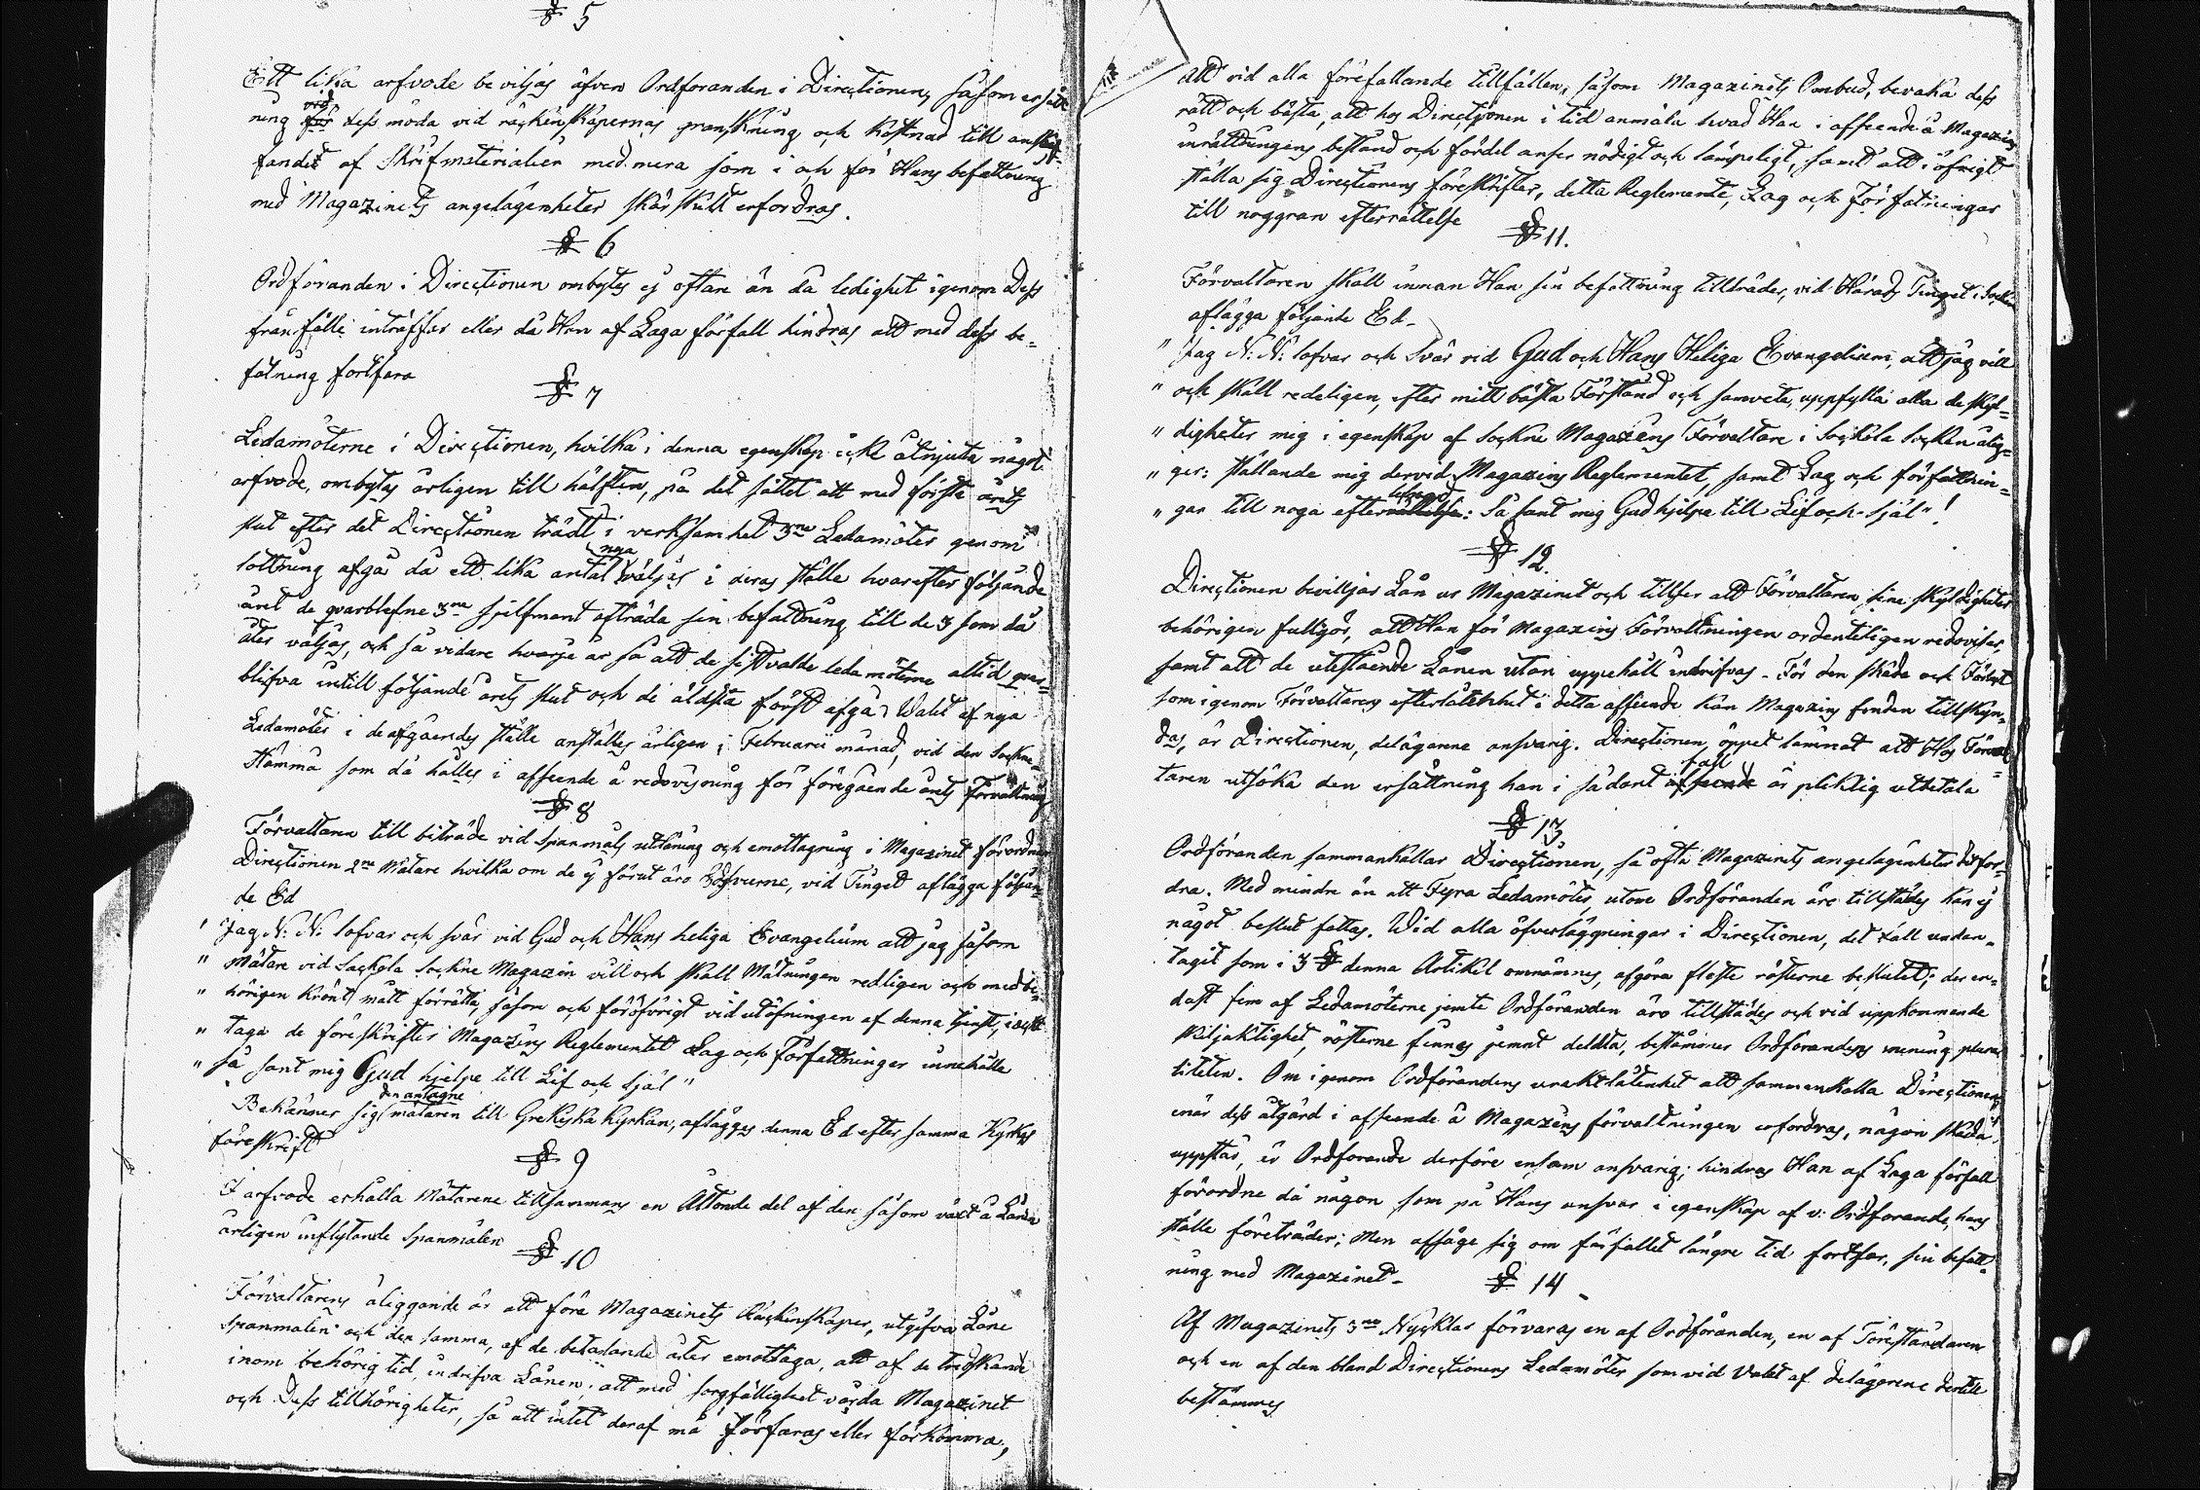 § 5
Ett lika arfvode beviljas äfven Ordföranden i Directionen, såsom ersätt
ning vid för dess möda vid räckenskapernas granskning och kostnad till anskaf-
fandet af Skrifmaterialier med mera som i och för Hans befattning
med Magazinets angelägenheter särskildt erfordras.
§ 6
Ordföranden i Directionen ombytes ej oftare än då ledighet igenom Dess
frånfälle inträffar eller då Han af Laga förfall hindras att med dess be-
fatning fortfara
§ 7
Ledamöterne i Directionen, hvilka i denna egenskap icke åtnjuta något
arfvode, ombytas årligen till hälften, på det sättet att med första årets
slut efter det Directionen trädt i verksamhet 3ne Ledamöter genom
lottning afgå då ett lika antal nya väljas i deras ställe hvarefter följande
året de qvarblefne 3ne sjelfmant afträda sin befattning till de 3 som då
åter väljas, och så vidare hvarje år så att de sist valde ledamöterne alltid qvar-
blifva intill följande årets slut och de äldsta först afgå. Valet af nya
Ledamöter i de afgåendes ställe anställes årligen i Februarii månad, vid den Sockne-
stämma som då hålles i afseende å redovisning för föregående årets Förvaltning
§ 8
Förvaltaren till biträde vid spanmåls utlåning och emottagning i Magazinet förordnar
Directionen 2ne Mätare hvilka om de ej förut äro Edsvurne, vid Tinget aflägga följan-
de Ed
" Jag N: N: lofvar och svär vid Gud och Hans heliga Evangelium att jag såsom
" Mätare vid Sackola Sockne Magazin vill och skall Mätningen redligen och med be-
" hörigen krönt mått förrätta, såsom och föröfrigt vid utöfningen af denna tjenst, iackt
" taga de föreskrifter Magazins Reglementet Lag och Författningar innehålla
" så sant mig Gud hjelpe till Lif och själ "
Bekänner sig den antagne mätaren till Grekiska Kyrkan, aflägges denna Ed efter samma Kyrkas
föreskrift
§ 9
I arfvode erhålla Mätarene tillsammans en Åttonde del af den såsom växt å Lånen
årligen inflytande Spanmålen
§ 10
Förvaltarens åliggande är att föra Magazinets Räckenskaper, utgifva Låne
spanmålen och den samma, af de betalande åter emottaga, att af de tredskande
inom behörig tid, indrifva Lånen; att med sorgfällighet vårda Magazinet
och Dess tillhörigheter, så att intet deraf må förfaras eller förkomma,
att vid alla förefallande tillfällen, såsom Magazinets Ombud, bevaka dess
rätt och bästa, att hos Directionen i tid anmäla hvad Han i afseende å Magazins
inrättningens bestånd och fördel anser nödigt och lämpeligt, samt att i öfrigt
ställa sig Directionens föreskrifter, detta Reglemente, Lag och Författningar
till noggran efterrättelse
§ 11.
Förvaltaren skall innan Han sin befattning tillträder, vid Härads Tinget i Socken
aflägga följande Ed-
" Jag N: N: lofvar och svär vid Gud och Hans Heliga Evangelium, att jag vill
" och skall redeligen, efter mitt bästa Förstånd och samvete, uppfylla alla de skyl-
" digheter mig i egenskap af Sockne Magazins Förvaltare i Sackola Socken ålig-
" ger: ställande mig dervid Magazins Reglementet, samt Lag och författnin-
" gar till noga efterlefnad rättelse: Så sant mig Gud hjelpe till Lif och själ "!
§ 12.
Directionen bevilljar Lån ur Magazinet och tillser att Förvaltaren sine skyldigheter
behörigen fullgör, att Han för Magazins Förvaltningen ordenteligen redovisar,
samt att de utestående Lånen utan uppehåll indrifvas. För den skada och Förlust
som igenom Förvaltarens efterlåtenhet i detta afseende kan Magazins fonden tillskyn-
das, är Directionen, delägarene ansvarig. Directionen, öppet lämnat att Hos Förval-
taren utsöka den ersättning han i sådant fall afseende är pliktig utbetala
§ 13
Ordföranden sammankallar Directionen, så ofta Magazinets angelägenheter det for-
dra. Med mindre än att Fyra Ledamöter, utom Ordföranden äro tillstädes kan ej
något beslut fattas. Wid alla öfverläggningar i Directionen, det fall undan-
tagit som i 3 § denna Artikel omnämnes, afgöra fleste rösterne beslutet; der en-
dast fem af Ledamöterne jemte Ordföranden äro tillstädes och vid uppkommande
skiljaktighet, rösterne finnes jemnt deldta, bestämmer Ordförandens mening plura-
liteten. Om igenom Ordförandens uraktlåtenhet att sammankalla Directionen,
när dess åtgärd i afseende å Magazins förvaltningen erfordras, någon skada
uppstår, är Ordförande derföre ensam ansvarig; hindras Han af Laga förfall
förordne då någon som på Hans ansvar i egenskap af v: Ordförande, hans
ställe företräder; Men afsäge sig om förfallet längre tid fortfar, sin befatt-
ning med Magazinet-
§ 14
Af Magazinets 3ne Nycklar förvaras en af Ordföranden, en af Föreståndaren
och en af den bland Directionens Ledamöter som vid Valet af delägarene dertill
bestämmes